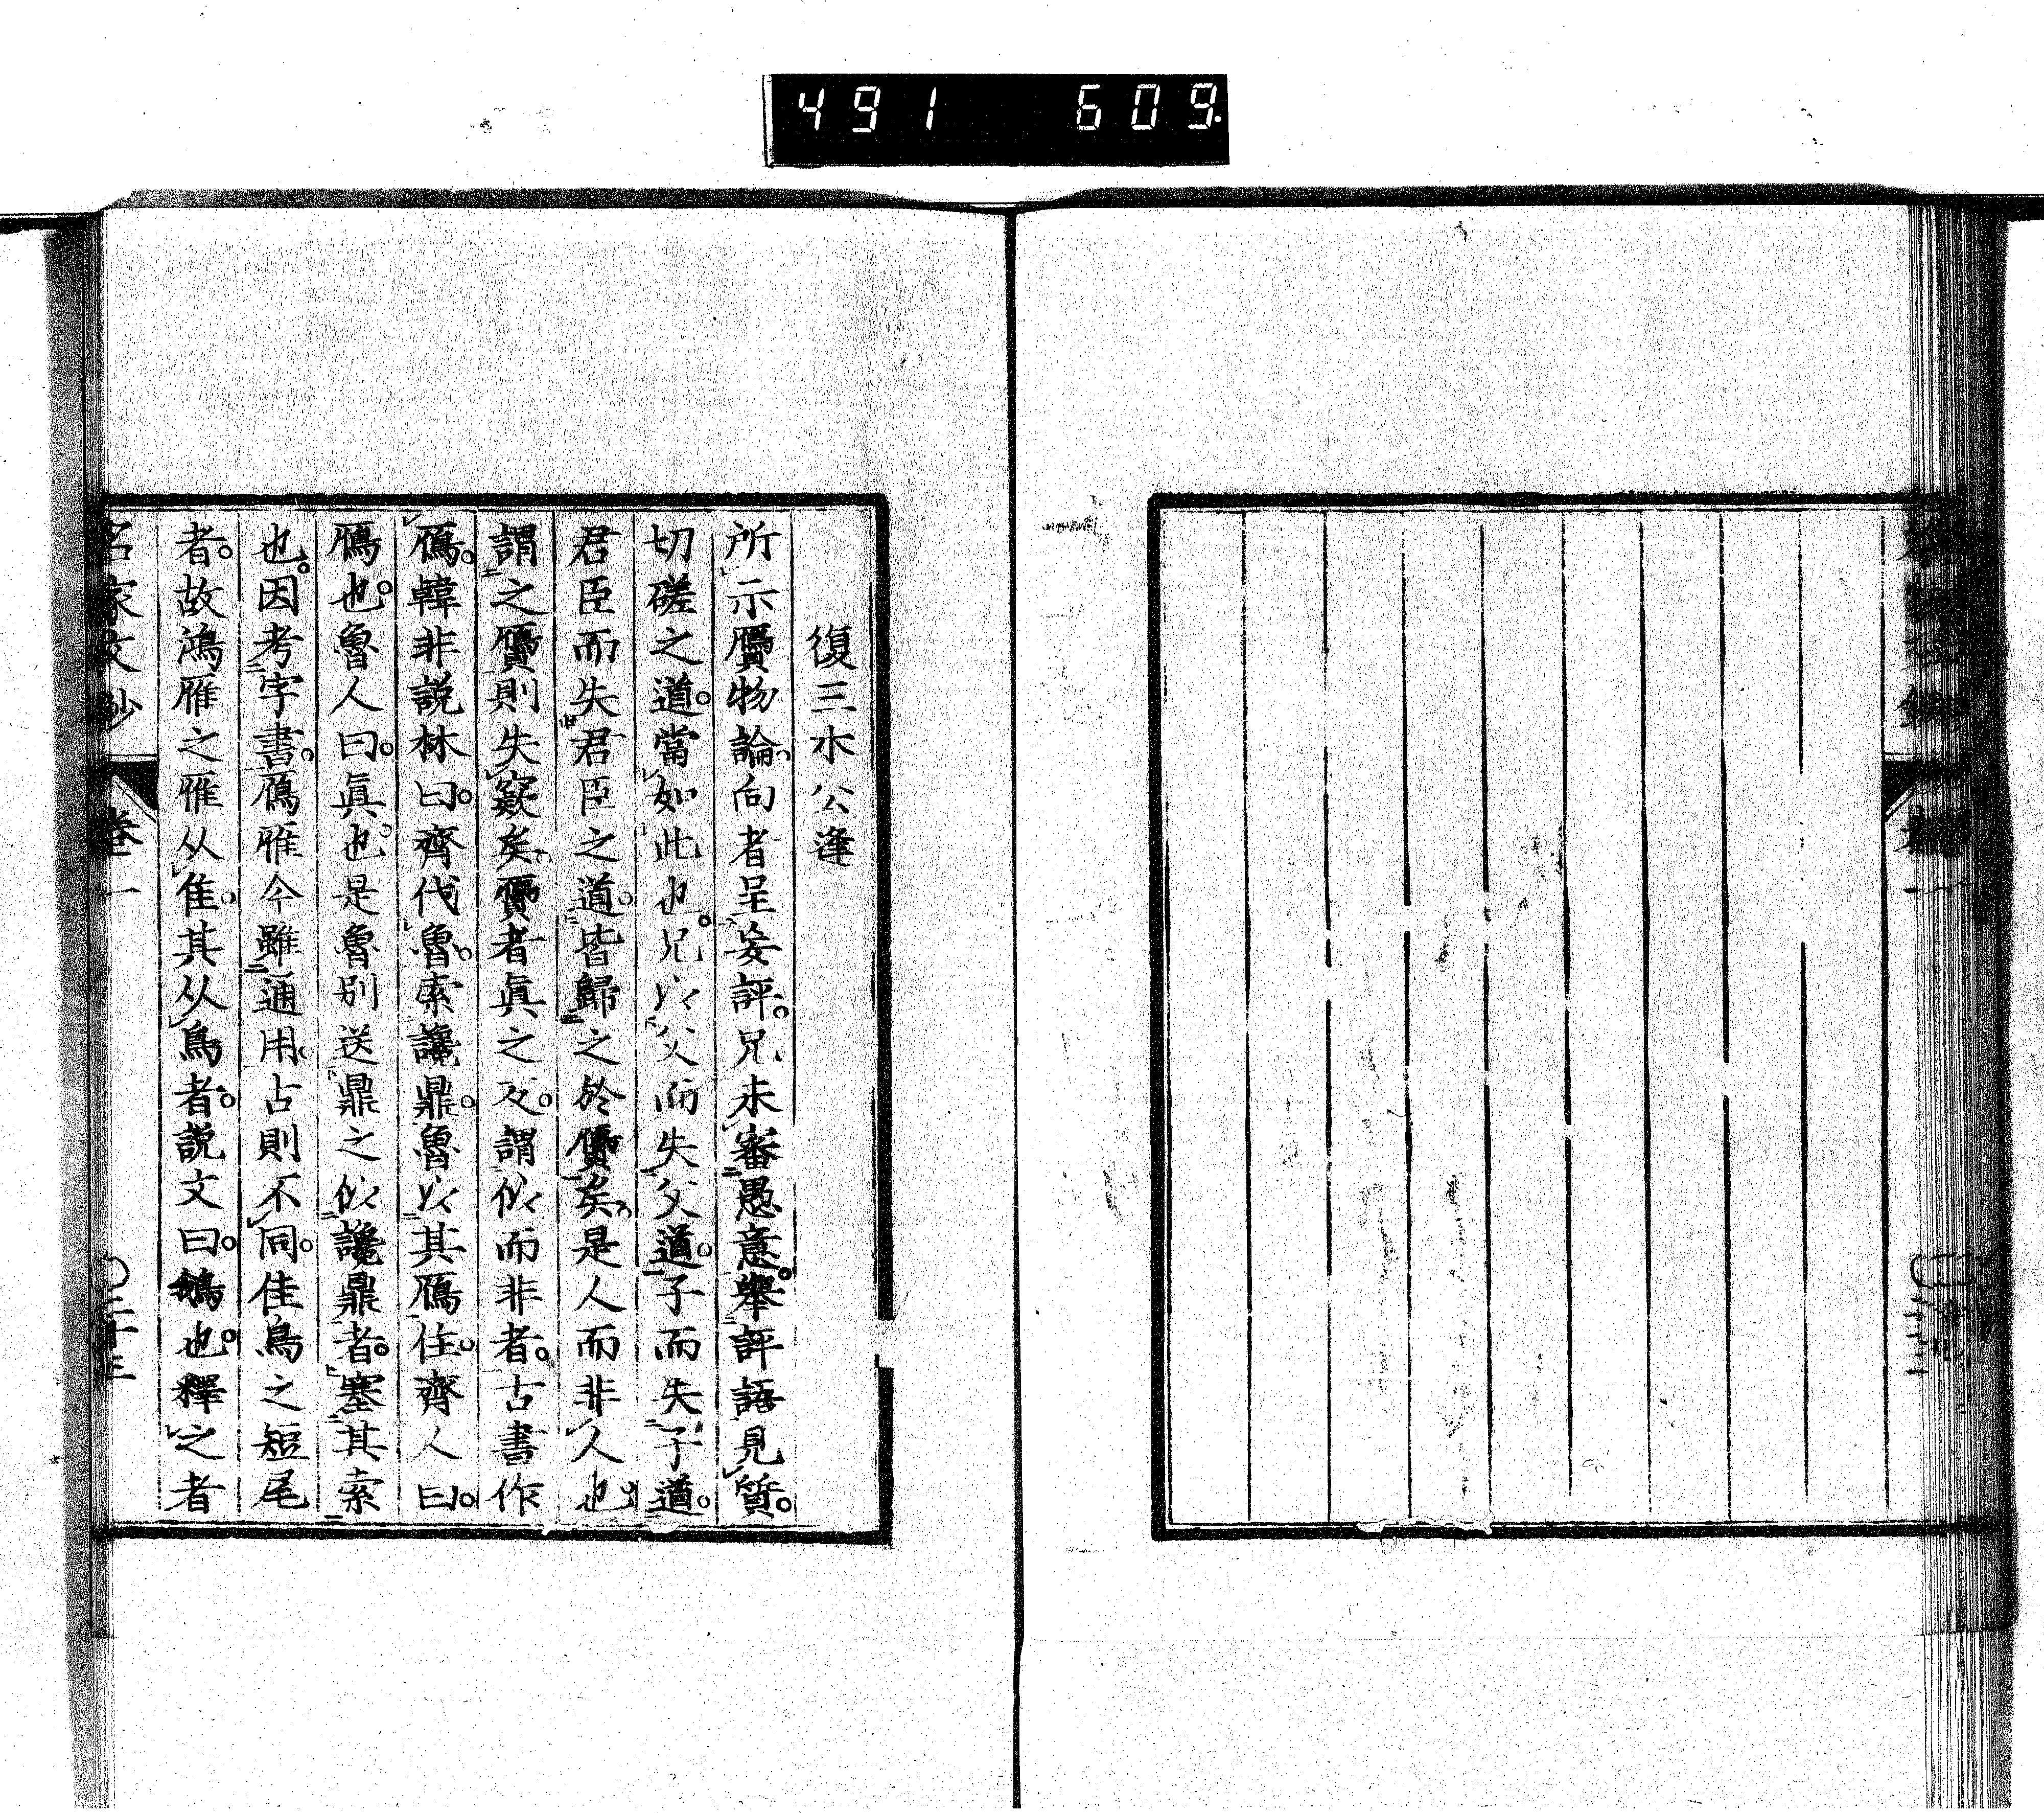 491 609.
復三水公逢
所示贗物論向者呈妄評。兄未審愚意。舉評語見質。
切磋之道。當如此也。兄以父而失父道。子而失子道。
君臣而失君臣之道。皆歸之於贗矣。是人而非人也。
謂之贗則失竅矣。贗者眞之反。謂似而非者。古書作
鴈。韓非説林曰。齊伐魯。索讒鼎。魯以其鴈往。齊人曰。
鴈也。魯人曰。眞也。是魯別送鼎之似讒鼎者。塞其索
也。因考字書。鴈雁今雖通用。占則不同。隹鳥之短尾
者。故鴻雁之雁从隹。其从鳥者。説文曰。鵝也。釋之者
名家文鈔
卷一
〇二十三